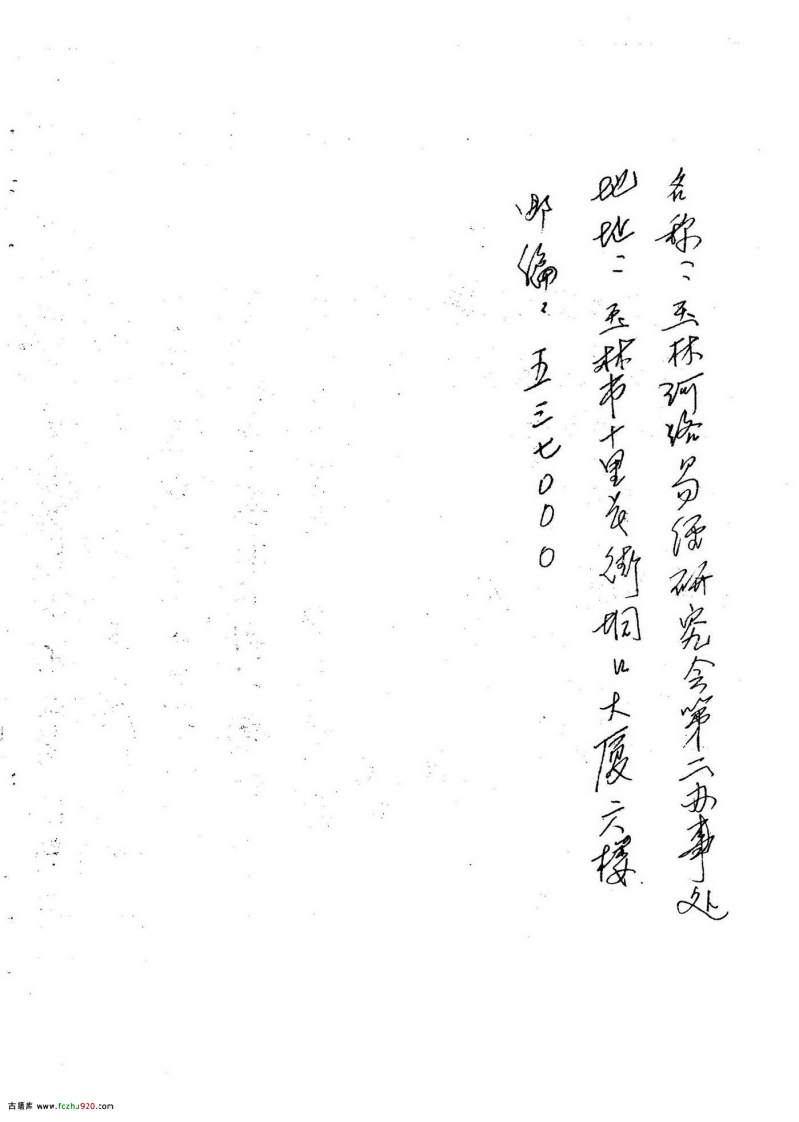 名称：玉林河洛易经研究会第二办事处
地址：玉林市十里长街垌口大厦六楼
邮编：五三七000
古籍库 www.fozhu920.com